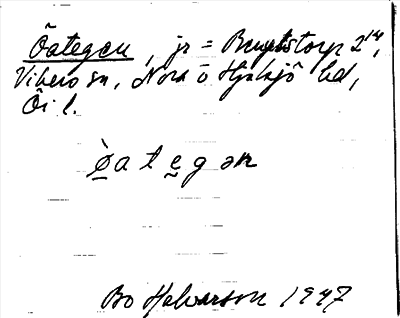 Öategen, jr = Bengtstorp 2¹⁴,
Vikers sn, Nora o Hjulsjö hd,
Ör l.
ö̀a t e̬ g ən
Bo Halvarson 1947